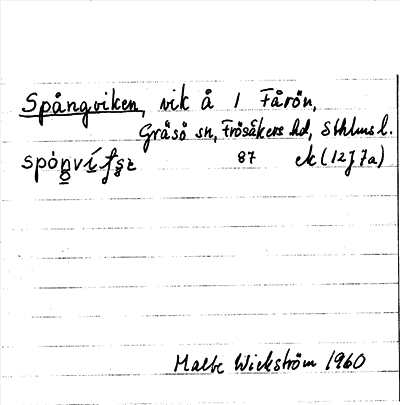 Spångviken, vik å 1 Fårön,
Gräsö sn, Frösåkers hd, Sthlms l.
87 ek (12J7a)
Malte Wickström 1960